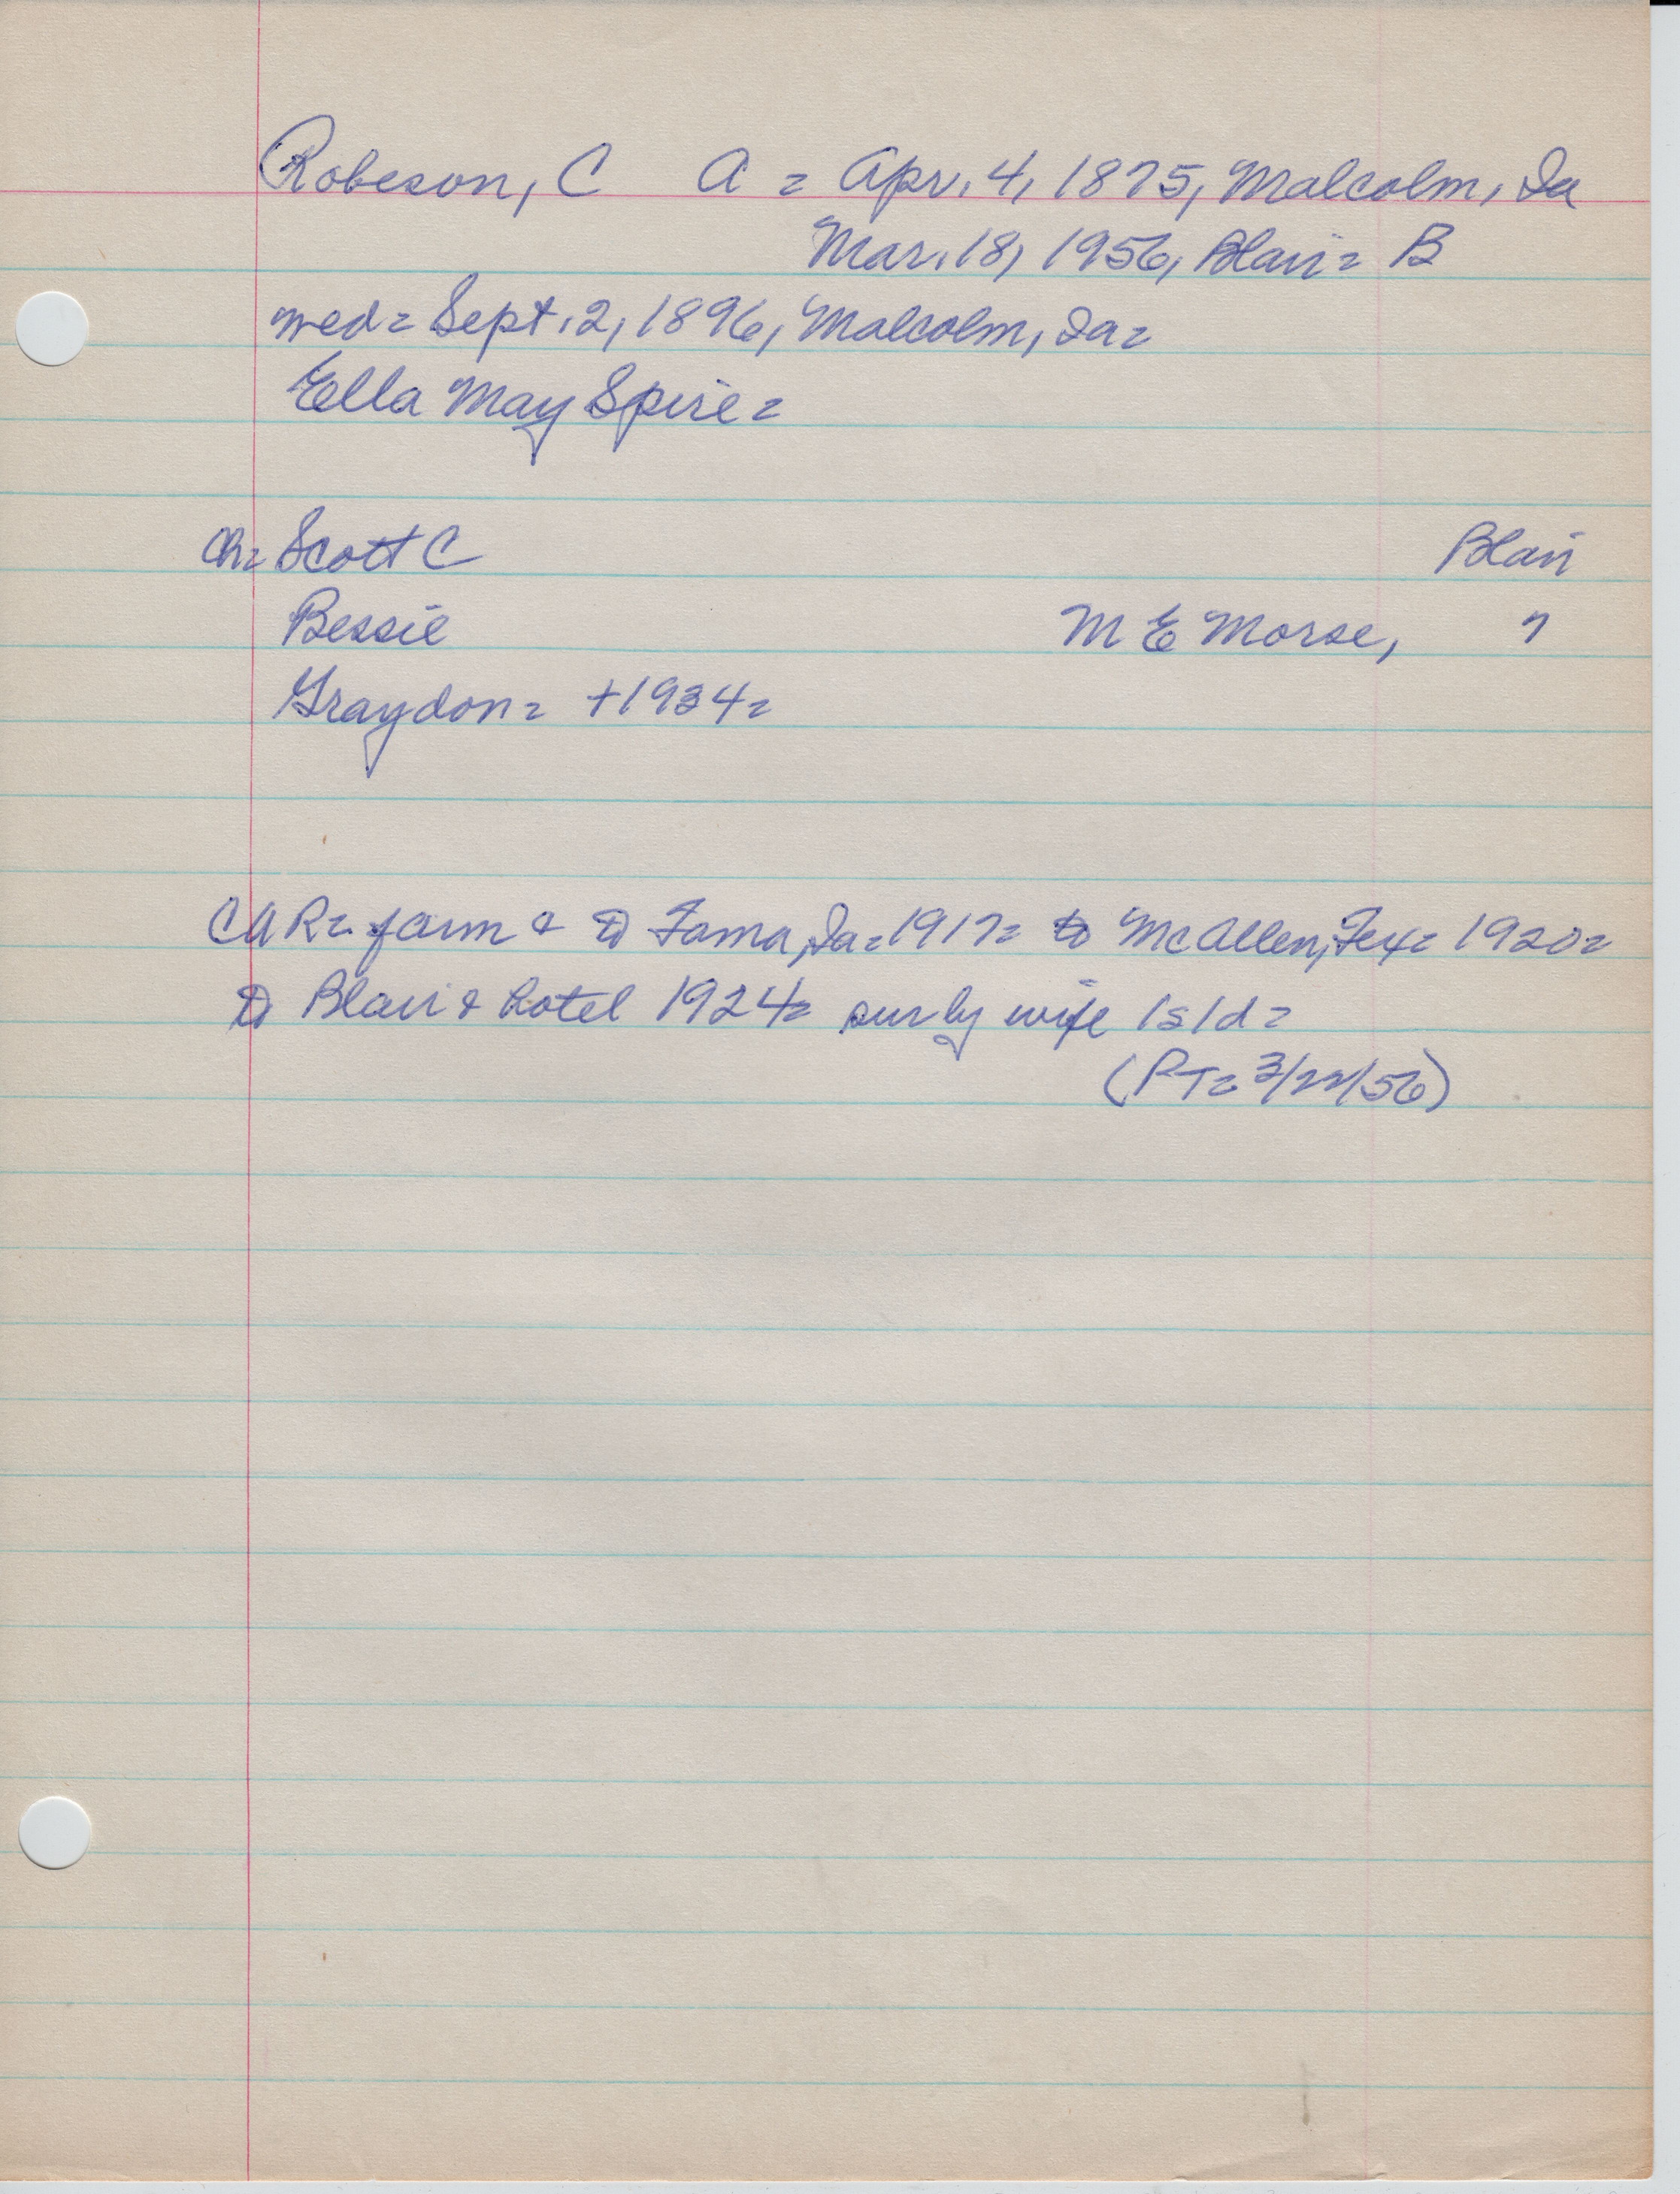 Robeson, C A = Apr. 4, 1875, Malcolm, Ia
Mar. 18, 1956, Blair = B
wed = Sept. 2, 1896, Malcolm, Ia =
Ella May Spire =
Ch = Scott C Blair
Bessie M E Morse, "
Graydon = +1934 =
C A R = farm & to Tama, Ia = 1917 = to McAllen, Tex = 1920 =
to Blair & hotel 1924 = sur by wife 1s 1d =
(PT = 3/22/56)